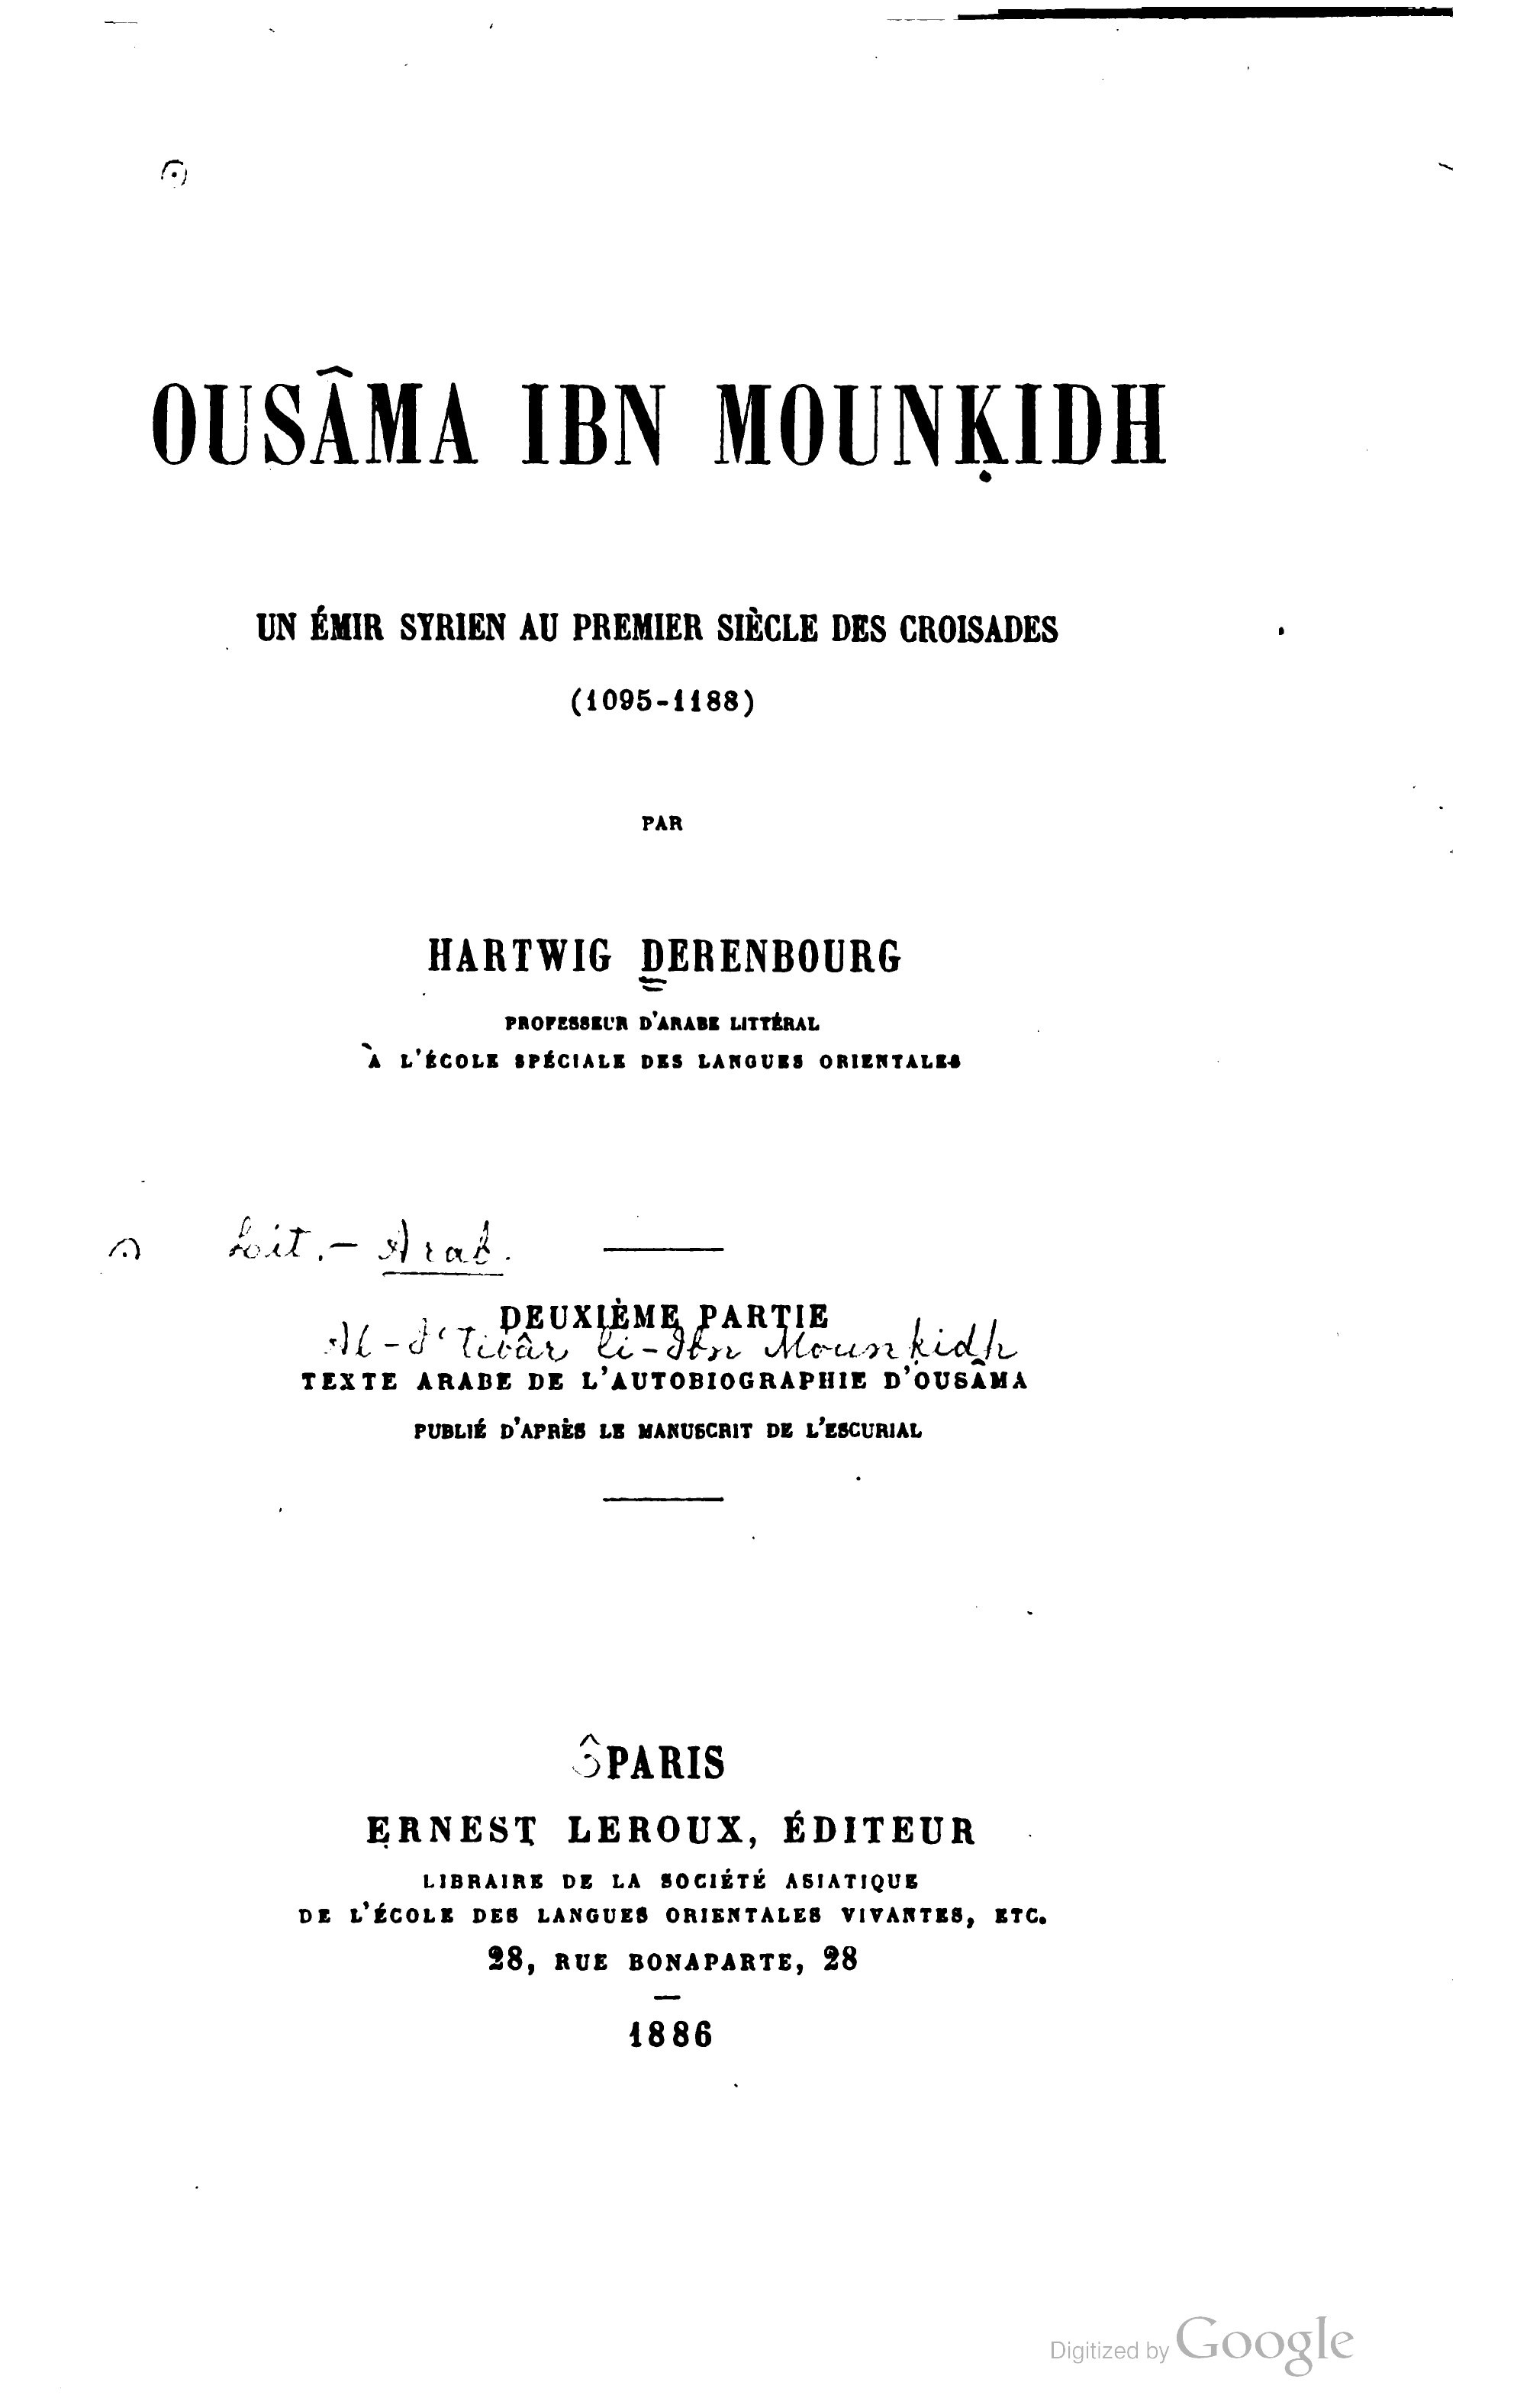 OUSÂMA IBN MOUNḲIDH
UN ÉMIR SYRIEN AU PREMIER SIÈCLE DES CROISADES
(1095-1188)
PAR
HARTWIG DERENBOURG
PROFESSEUR D'ARABE LITTÉRAL
À L'ÉCOLE SPÉCIALE DES LANGUES ORIENTALES
Lit. - Arab.
DEUXIÈME PARTIE
Al-I'Tibâr li-Ibn Mounḳidh
TEXTE ARABE DE L'AUTOBIOGRAPHIE D'OUSÂMA
PUBLIÉ D'APRÈS LE MANUSCRIT DE L'ESCURIAL
PARIS
ERNEST LEROUX, ÉDITEUR
LIBRAIRE DE LA SOCIÉTÉ ASIATIQUE
DE L'ÉCOLE DES LANGUES ORIENTALES VIVANTES, ETC.
28, RUE BONAPARTE, 28
1886
Digitized by Google